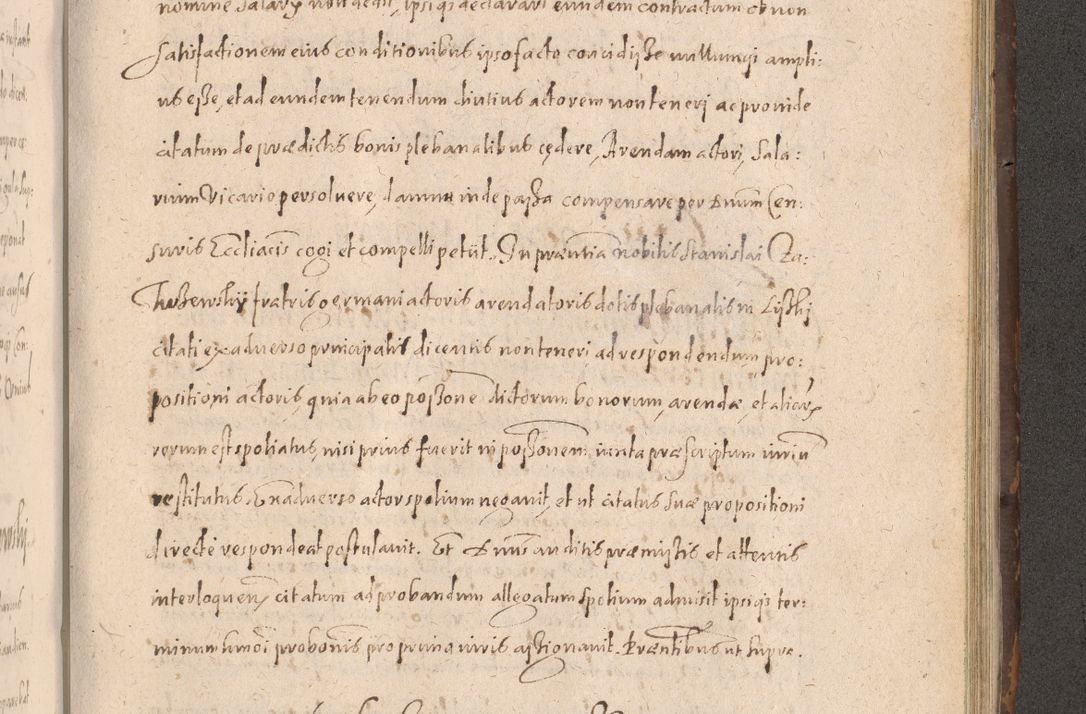 nomine salarÿ non dedit, ipsi qs declarari eundem contractum ob non
satisfactionem eius conditionibus ipso facto concidisse nullumqs ampli:
us esse, et ad eundem tenendum diutius actorem non teneri ac proinde
citatum de prædictis bonis plebanalibus cędere, Arendam actori, Sala:
rium Vicario persoluere, damna inde passa compensare per Dnum Cen:
suris Eccliacis cogi et compelli petiit. In præntia nobilis Stanislai Za:
fratris germani actoris arendatoris dotis plebanalis in Lisski
citati ex aduerso principalis dicentis non teneri ad respondendum pro:
positioni actoris, quia ab eo possone dictorum bonorum, arendæ, et aliar
rerum est spoliatus, nisi prius fuerit in possonem iuxta præscriptum iuriu
restitutus. Ex aduerso actor spolium negauit, et ut citatus suæ propositioni
directe respondeat postulauit. Et Dnus auditis præmissis et attentis
interloquen citatum ad probandum allegatum spolium admisit ipsi qs ter:
minum simoi pro bonis pro prima iuris assignauit. Præntibus ut supra.